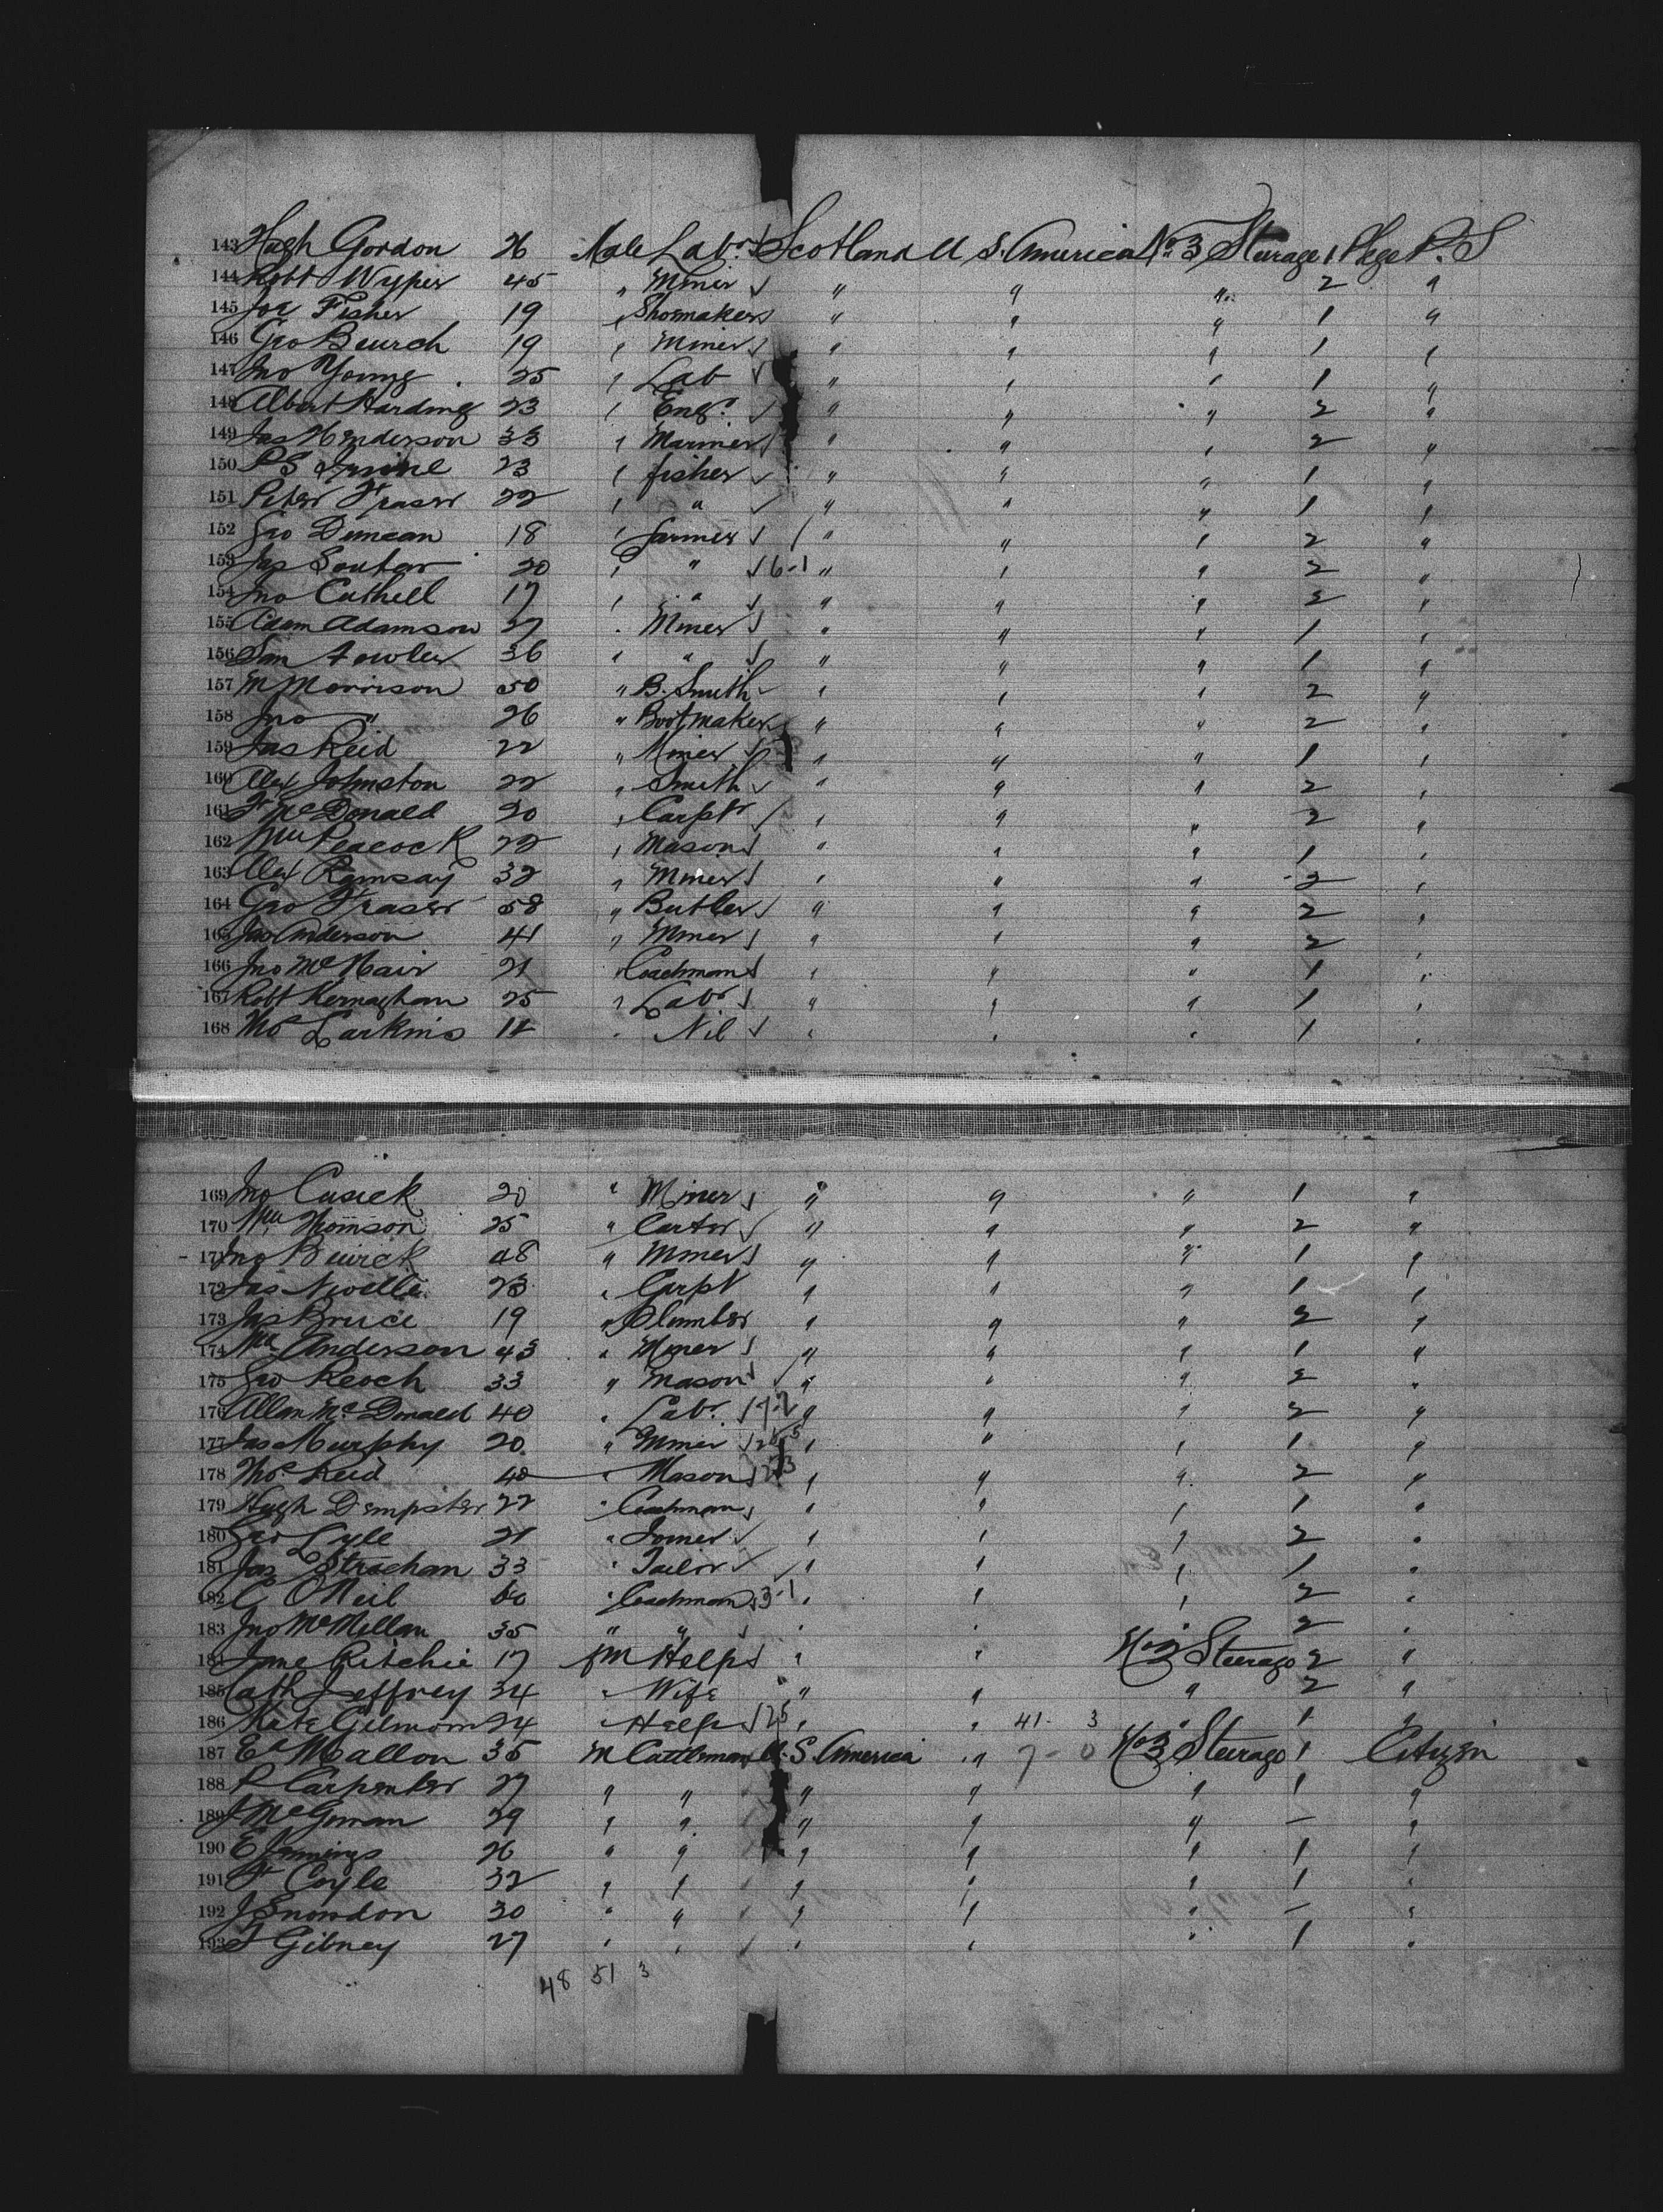 143 Hugh Gordon 26 Male Labr Scotland U.S. America No 3 Steerage 1 Pkge P.S
144 Robt Wyper 45 " Miner " " " 2 "
145 Joe Fisher 19 " Shoemaker " " " 1 "
146 Geo Beurch 19 " Miner " " " 1 "
147 Jno Young 25 " Lab " " " 1 "
148 Albert Harding 23 " Engr " " " 2 "
149 Jas Henderson 33 " Mariner " " " 2 "
150 P S Irvine 23 " fisher " " " 1 "
151 Peter Fraser 22 " " " " " 1 "
152 Geo Duncan 18 " farmer " " " 2 "
153 Jas Souter 20 " " 6-1 " " " 2 "
154 Jno Cuthell 17 " " " " " 2 "
155 Adam Adamson 27 " Miner " " " 1 "
156 Sam Fowler 36 " " " " " 1 "
157 M Morrison 50 " B. Smith " " " 2 "
158 Jno " 26 " Bootmaker " " " 2 "
159 Jas Reid 22 " Miner " " " 1 "
160 Alex Johnston 22 " Smith " " " 2 "
161 F McDonald 20 " Carptr " " " 2 "
162 Wm Peacock 22 " Mason " " " 1 "
163 Alex Ramsay 32 " Miner " " " 2 "
164 Geo Fraser 58 " Butler " " " 2 "
165 Jno Anderson 41 " Miner " " " 2 "
166 Jno McNair 21 " Coachman " " " 1 "
167 Robt Kernaghan 25 " Labr " " " 1 "
168 Thos Larkins 11 " Nil " " " 1 "
169 Jno Cusick 20 " Miner " " " 1 "
170 Wm Thomson 25 " Carter " " " 2 "
171 Jno Beurck 48 " Miner " " " 1 "
172 Jas 23 " Carpt " " " 1 "
173 Jas Bruce 19 " Plumber " " " 2 "
174 Wm Anderson 43 " Miner " " " 1 "
175 Geo Reoch 33 " Mason " " " 2 "
176 Allan McDonald 40 " Labr 7-2 " " " 2 "
177 Jas Murphy 20 " Miner " " " 1 "
178 Thos Reid 40 " Mason " " " 2 "
179 Hugh Dempster 22 " Coachman " " " 1 "
180 Geo Lyle 21 " Joiner " " " 2 "
181 Jas Strachan 33 " Tailor " " " 1 "
182 C ONeil 60 " Coachman 3-1 " " " 2 "
183 Jno McMillan 35 " " " " 2 "
184 Jane Ritchie 17 fm Help " " No 2 Steerage 2 "
185 Cath Jeffrey 34 " Wife " " " 2 "
186 Kate Gilmom 24 " Help 25 " " 41- 3 " 1 "
187 Ed Mallon 35 M Cattleman U.S. America " 7-0 No 3 Steerage 1 Citizen
188 P Carpenter 27 " " " " " 1 "
189 J McGowan 29 " " " " " - "
190 E Jennings 26 " " " " " 1 "
191 F Coyle 32 " " " " " 1 "
192 J Snowdon 30 " " " " " - "
193 T Gibney 27 " " " " " 1 "
48 51 3